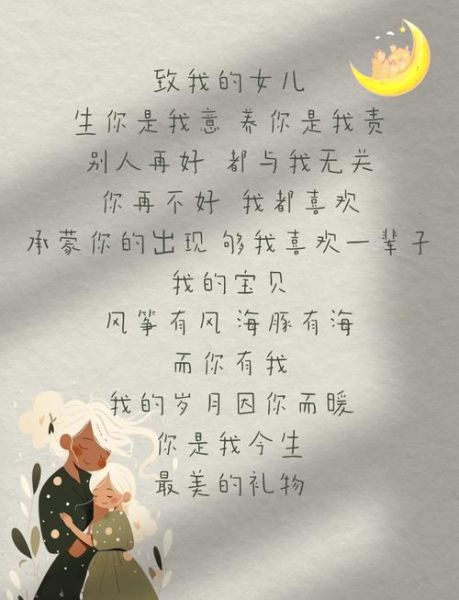 致我的女儿
生你是我意 养你是我责
别人再好 都与我无关
你再不好 我都喜欢
承蒙你的出现 够我喜欢一辈子
我的宝贝
风筝有风 海豚有海
而你有我
我的岁月因你而暖
你是我今生
最美的礼物